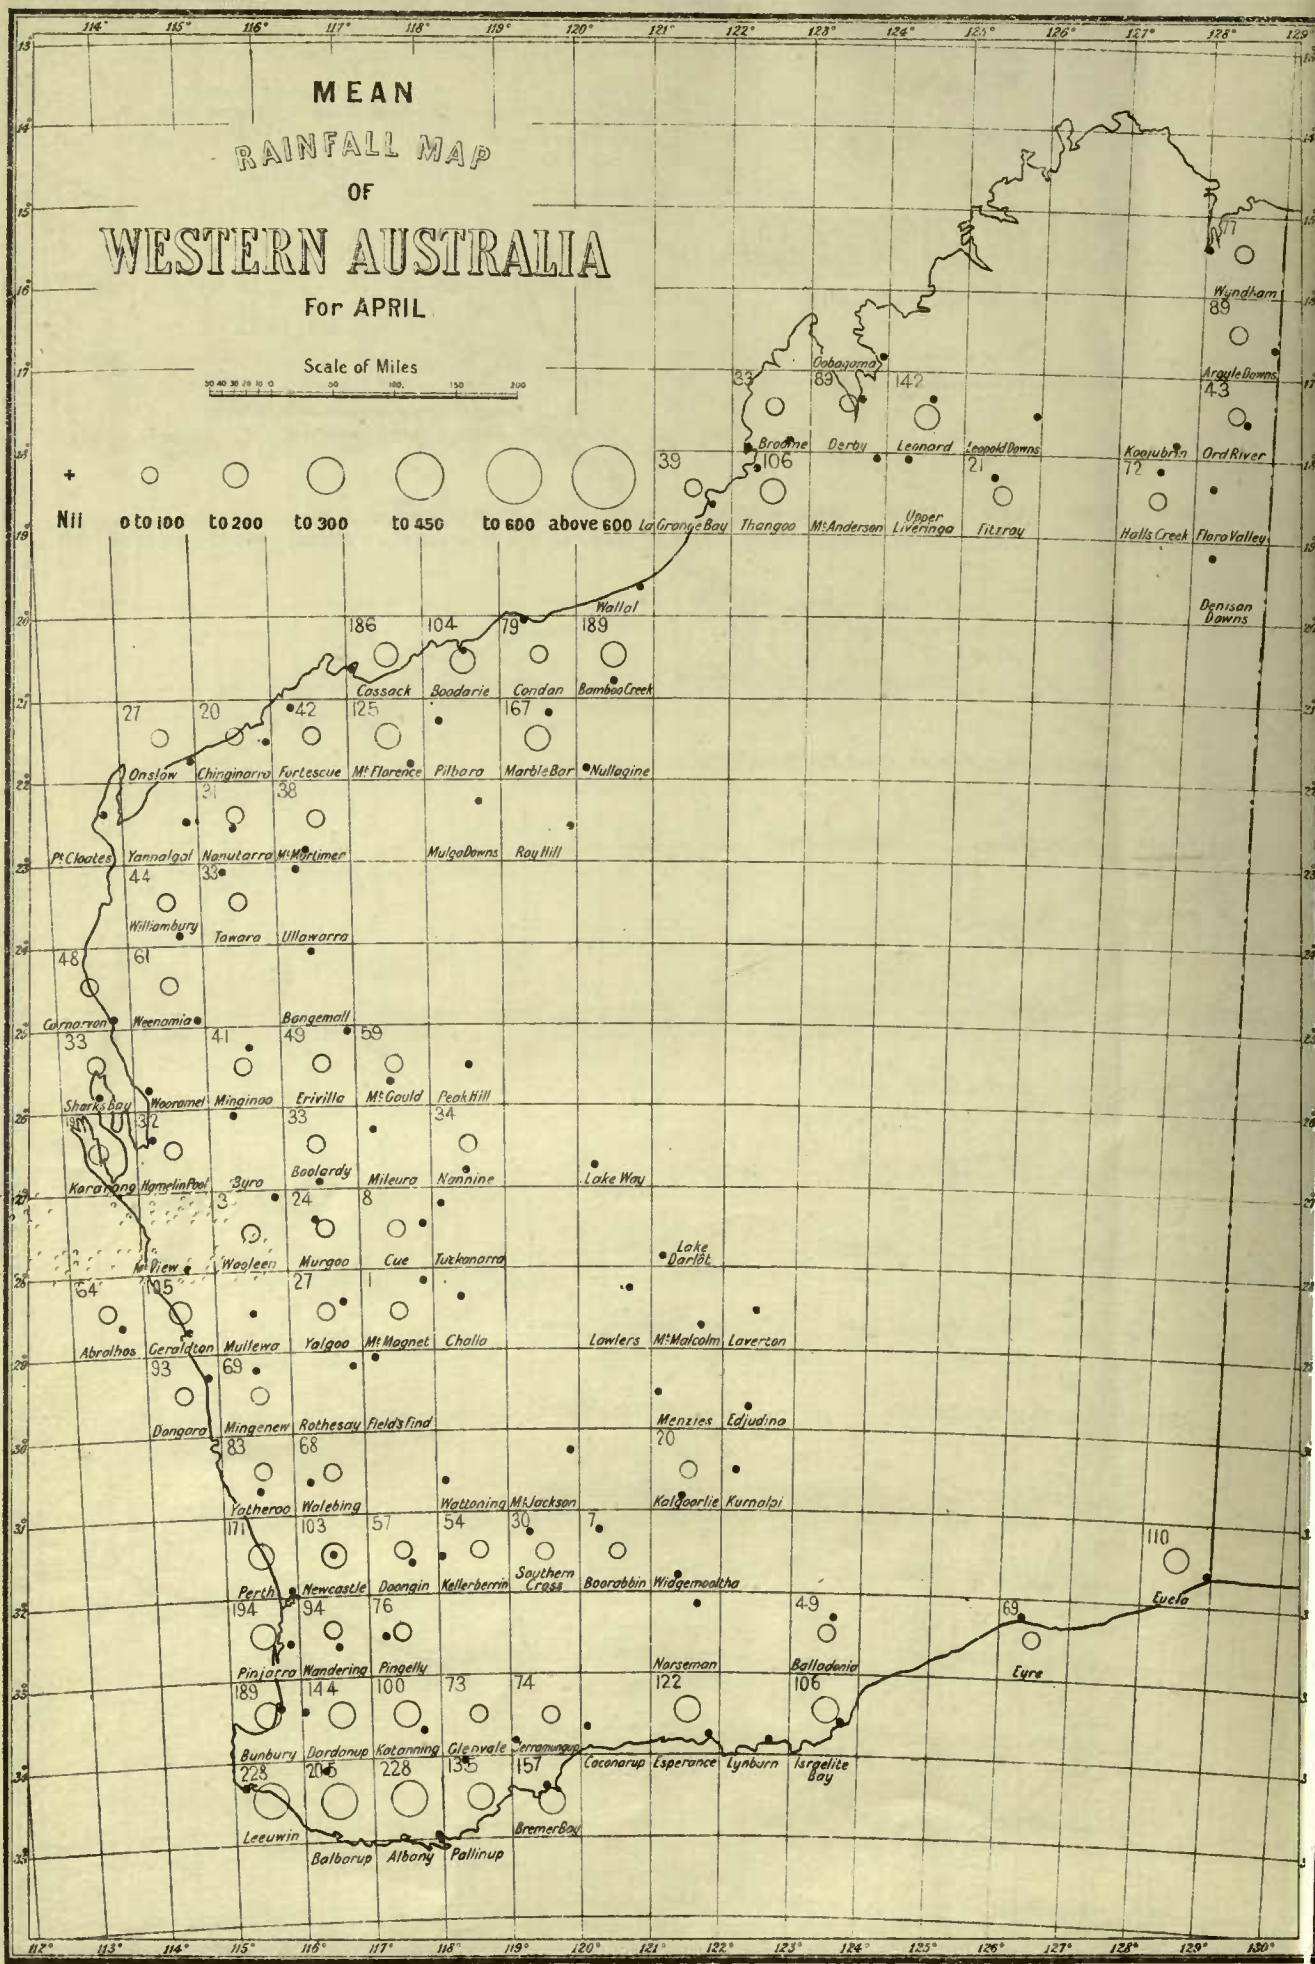 114° 115° 116° 117° 118° 119° 120° 121° 122° 123° 124° 125° 126° 127° 128° 129°
MEAN
RAINFALL MAP
OF
WESTERN AUSTRALIA
For APRIL
Scale of Miles
50 40 30 20 10 0 50 100 150 200
Nil 0 to 100 to 200 to 300 to 450 to 600 above 600
13°
14°
15°
77
Wyndham
16°
89
Argyle Downs
17°
33 Oobagama 89 142 43
Broome Derby Leonard Leopold Downs Koojubrin Ord River
18°
39 106 21 72
La Grange Bay Thangoo Mt Anderson Upper Liveringa Fitzroy Halls Creek Flora Valley
19°
Wallal Denison Downs
20°
186 104 79 189
Cossack Boodarie Condan Bamboo Creek
21°
27 20 42 125 167
Onslow Chinginarra Fortescue Mt Florence Pilbara Marble Bar Nullagine
22°
31 38
Pt Cloates Yannalgal Nanutarra Mt Mortimer Mulga Downs Roy Hill
23°
44 33
Williambury Towara Ullawarra
24°
48 61
Carnarvon Weenamia Bangemall
25°
33 41 49 59
Sharks Bay Wooramel Minginoo Erivilla Mt Gould Peak Hill
26°
32 33 34
Kararang Hamelin Pool Byro Boolardy Mileura Nannine Lake Way
27°
3 24 8
Mt View Wooleen Murgoo Cue Tuckanarra Lake Darlot
28°
64 105 27 1
Abrolhos Geraldton Mullewa Yalgoo Mt Magnet Challa Lawlers Mt Malcolm Laverton
29°
93 69
Dongara Mingenew Rothesay Field's Find Menzies Edjudina
30°
83 68 20
Yatheroo Walebing Wattoning Mt Jackson Kalgoorlie Kurnalpi
31°
171 103 57 54 30 7 110
Perth Newcastle Doongin Kellerberrin Southern Cross Boorabbin Widgemooltha Eucla
32°
194 94 76 49 69
Pinjarra Wandering Pingelly Norseman Balladonia Eyre
33°
189 144 100 73 74 122 106
Bunbury Dardanup Katanning Glenvale Jerramungup Coconarup Esperance Lynburn Israelite Bay
34°
228 205 228 135 157
Leeuwin Balbarup Albany Pallinup Bremer Bay
35°
112° 113° 114° 115° 116° 117° 118° 119° 120° 121° 122° 123° 124° 125° 126° 127° 128° 129° 130°